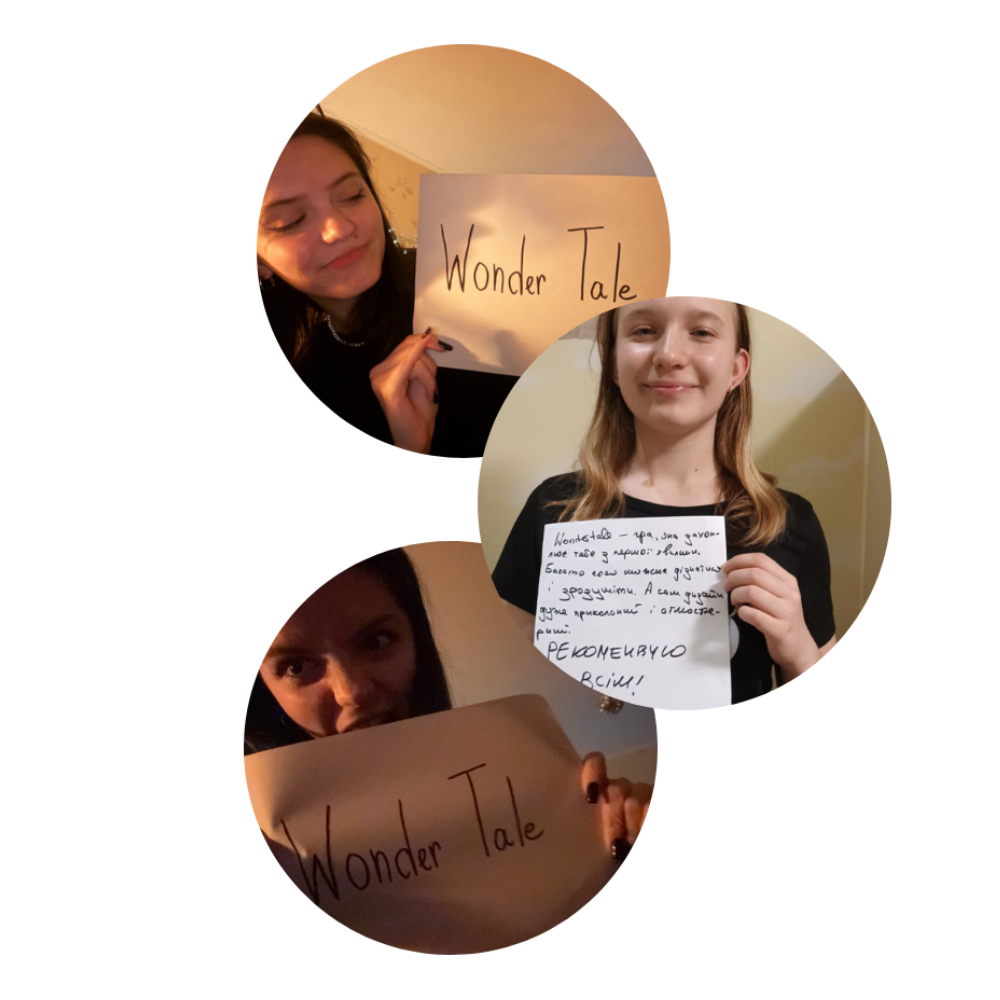 Wonder Tale
Wondertale – гра, яка захоп-
лює тебе з першої хвилини.
Багато чого можна дізнатись
і зрозуміти. А сам дизайн
дуже прикольний і атмосфе-
рний.
РЕКОМЕНДУЮ
ВСІМ!
Wonder Tale